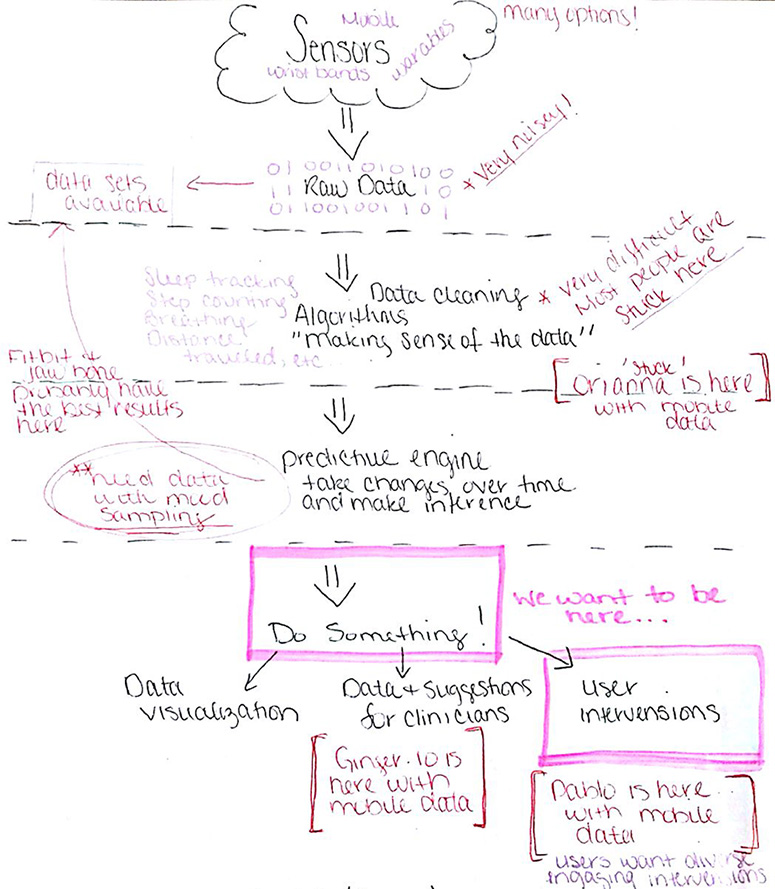 Mobile
many options!
Sensors
wrist bands
warables
01 0011010100
11 Raw Data 10
011001001101
* very noisy!
data sets
available
Sleep tracking
Step counting
Breathing
Distance
traveled, etc...
Data cleaning
Algorithms
"making sense of the data"
* very difficult
Most people are
stuck here
Fitbit +
jaw bone
probably have
the best results
here
'stuck'
[Orianna is here]
with mobile
data
predictive engine
take changes over time
and make inference
**need data
with mood
sampling
Do Something!
we want to be
here...
Data
visualization
Data + suggestions
for clinicians
user
intervensions
[Ginger.io is
here with
mobile data]
[Pablo is here...
with mobile
data]
users want diverse
engaging interventions